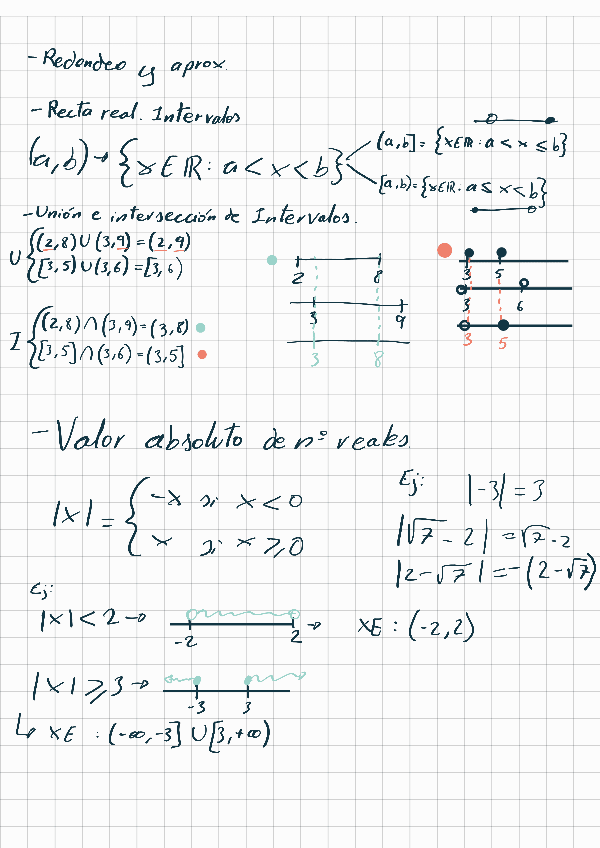 - Redondeo y aprox.
- Recta real. Intervalos
(a,b) → {x∈ℝ: a < x < b}
(a,b] = {x∈ℝ: a < x ≤ b}
[a,b) = {x∈ℝ: a ≤ x < b}
- Unión e intersección de Intervalos.
U { (2,8) ∪ (3,9) = (2,9)
[3,5] ∪ (3,6) = [3,6)
I { (2,8) ∩ (3,9) = (3,8)
[3,5] ∩ (3,6) = (3,5]
2 8
3 9
3 8
3 5
3 6
3 5
- Valor absoluto de nº reales
|x| = { -x si x < 0
x si x ≥ 0
Ej: |-3| = 3
|√7 - 2| = √7 - 2
|2-√7| = -(2-√7)
Ej:
|x| < 2 → -2 2 → x∈ : (-2,2)
|x| ≥ 3 → -3 3
↳ x∈ : (-∞,-3] ∪ [3,+∞)